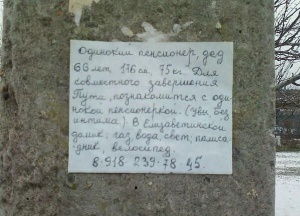 Одинокий пенсионер, дед
66 лет 176 см, 75 кг. Для
совместного завершения
Пути, познакомится с оди-
нокой пенсионеркой. (Увы без
интима.) В Елизаветинской
домик: газ, вода, свет, палиса-
дник, велосипед.
8-918 239-78 45.